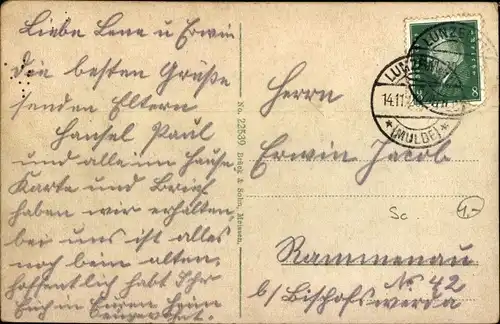 Liebe Lene u Erwin
die besten Grüße
senden Eltern
Hansel Paul
und alle im Hause
Karte und Brief
haben wir erhalten,
bei uns ist alles
noch beim alten,
hoffentlich habt Ihr
Euch in Euren Heim
eingewöhnt.
No. 22539 Brück & Sohn, Meissen.
LUNZENAU
14.11.
*(MULDE)*
8
Herrn
Erwin Jacob
Sa.
1,-
Rammenau
No 42
b/ Bischofswerda